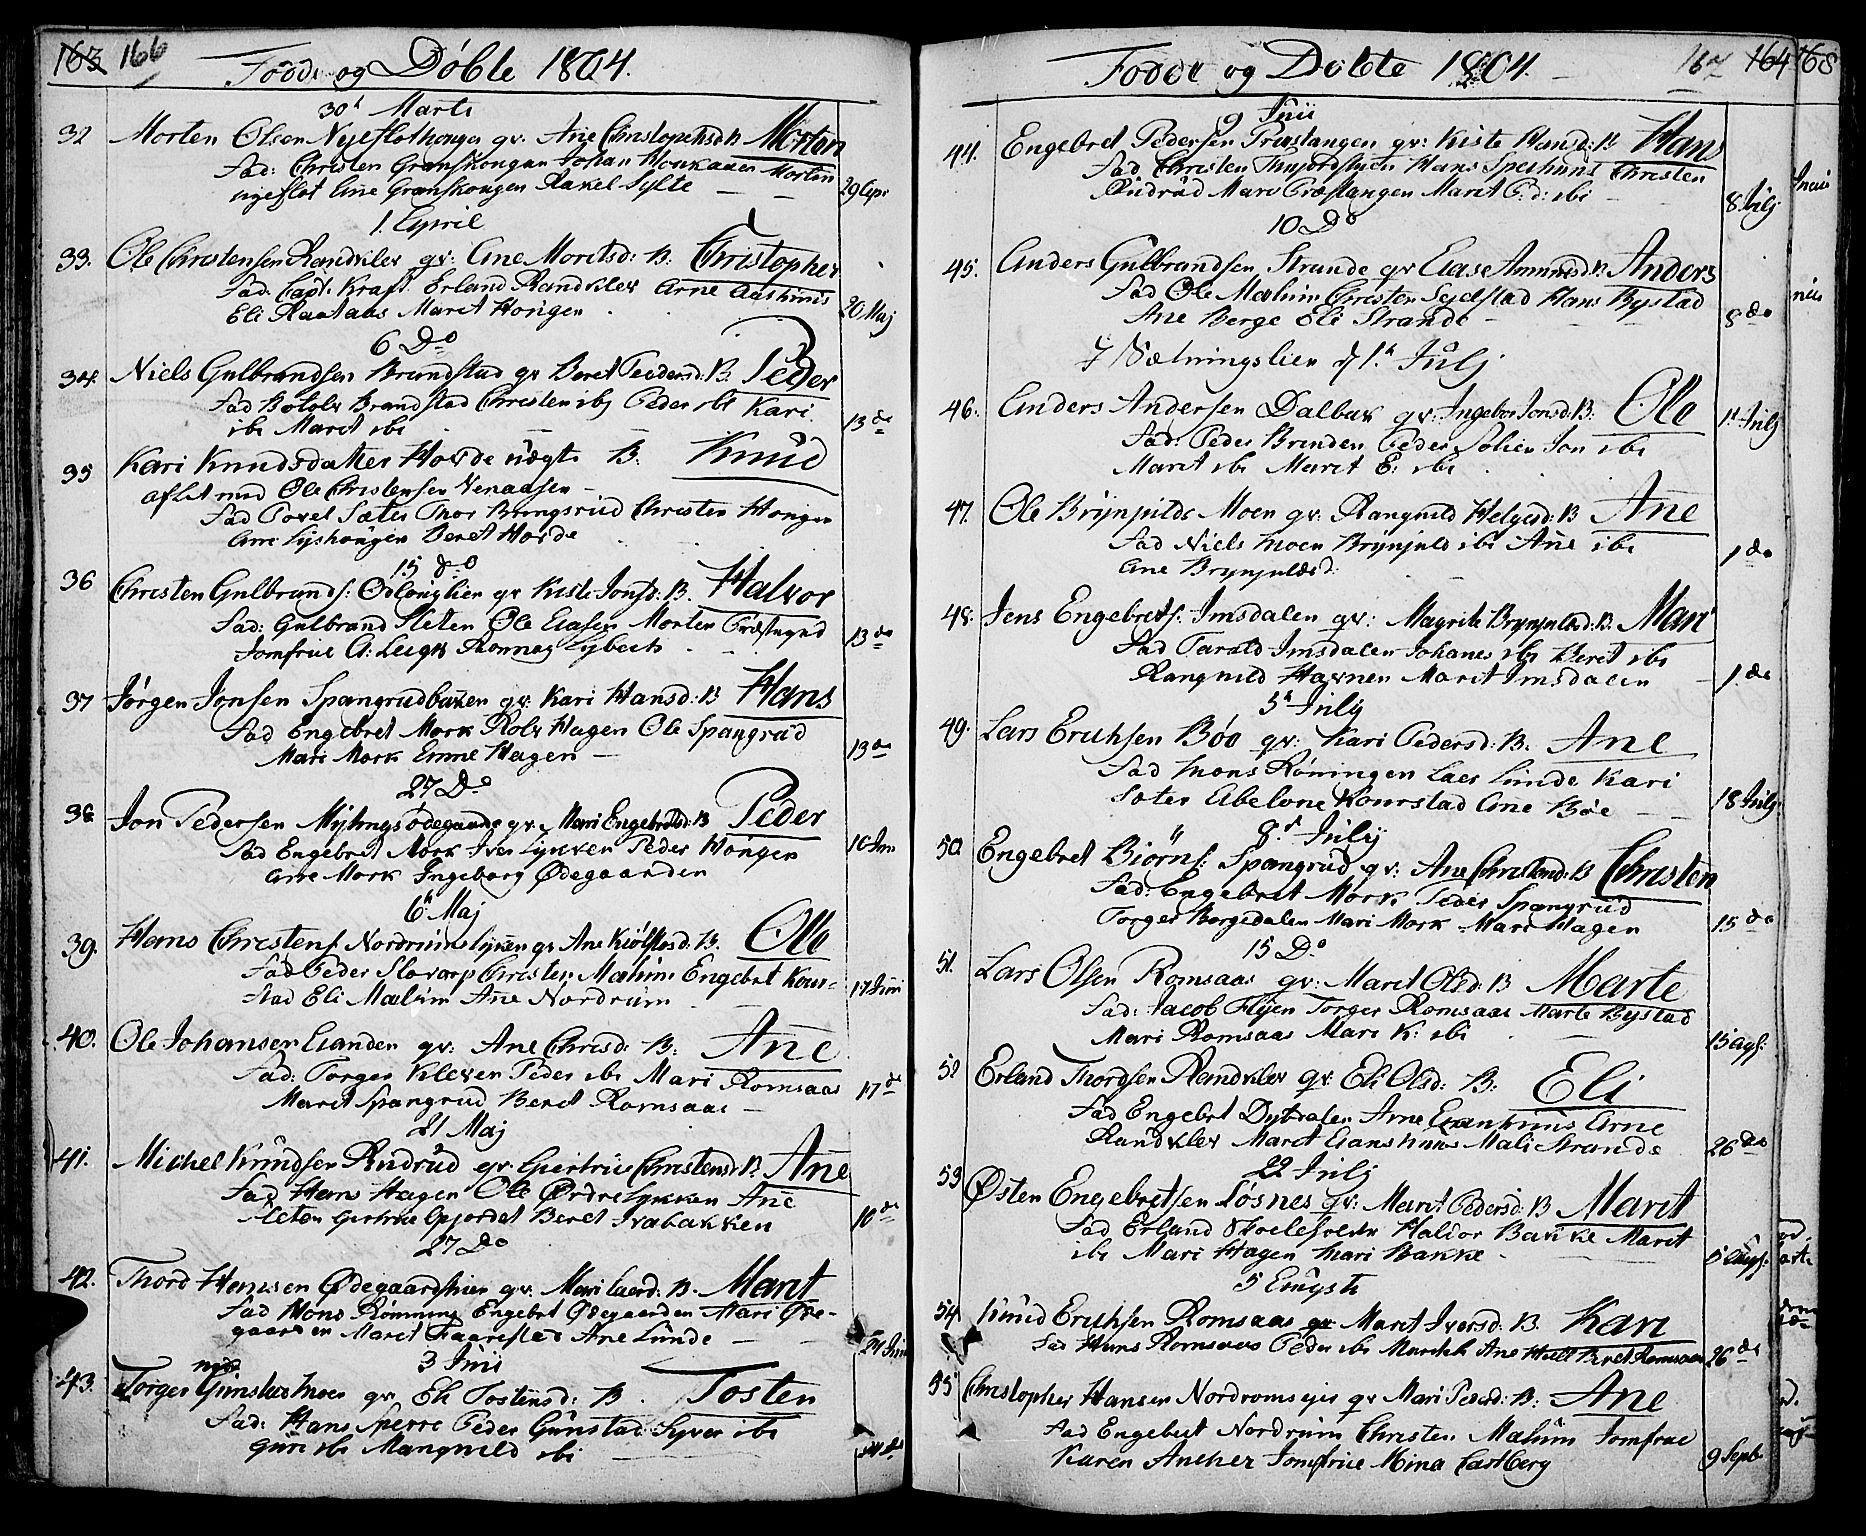 163 166 Fødde og Døbte 1804.
30t Marti
32 Morten Olsen Nyeflothougen gv. Ane Christophersd. B. Morten
Fad: Christen Granskougen Johan Haakaaen Morten
nyeflot Ane Granskougen Rakel Sylte 29 Apr
1. April
33. Ole Christensen Randklev gv: Ane Moritsd: B. Christopher
Fad: Capt. Kraft Erland Randklev Arne Aashuus
Eli Raaraas Marit Hougen 20 Maj
6 Do
34. Niels Gulbrandsen Brandstad gv Beret Pedersd. B. Peder
Fad Botolv Brandstad Christen ibj Peder ibi Kari
ibi Marit ibi 13 do
35 Kari Knudsdatter Hovde ugift B: Knud
aflet med Ole Christensen Venaasen
Fad Povel Sæter Thor Bungsrud Christen Hougen
Ane Lyshougen Beret Hovde
15 do
36 Christen Gulbrands: Odlouglien gv Kiste Jonsd: B. Halvor
Fad: Gulbrand Sleten Ole Morten Præstegrd
Jomfrue A: Ronnog Lybech 13 do
37 Jørgen Jonsen Spangrudbaken gv: Kari Hansd: B Hans
Fad Engebret Mork Rolv Hagen Ole Spangrud
Mari Mork Emne Hagen 13 do
27 Do
38 Jon Pedersen Myhngsødegaarde gv. Mari Engebretsd: B Peder
Fad Engebret Mork Iver Lykken Peder Hougen
Ane Mork Ingeborg Ødegaarden 10 Jun
6t Maj
39. Hans Christens: Nordrumslykken gv Ane Kiølstad. B. Ole
Fad Peder Slovarp Christen Mælum Engebret Kour-
stad Eli Mælum Ane Nordrum 17 Juni
40. Ole Johansen Lianden gv: Ane Chrisd: B: Ane
Fad: Torger Kleven Peder ibi Mari Romsaas
Marit Spangrud Beret Romsaas 17 do
21 Maj
41. Michel Knudsen Rudrud gv. Giertrue Christensd: B. Ane
Fad Hans Hagen Ole Ørdrelykken Ane
Sleten Giertrue Opjordet Beret Frabakken 10 do
27 Do
42. Thord Hansen Ødegaardshien gv. Mari Laersd. B. Marit
Fad Mons Rønning Engebret Ødegaarden Mari Øde-
gaarden Marit Faarestad Ane Lunde 24 Juni
3 Juni
43. Torger Gunstadmoen gv. Eli Tostensd: B. Tosten
Fad: Hans Sperre Peder Gunstad Syver ibi
Guri ibi Rangnild ibi 24 do
Fødde og Døbte 1804. 167 164 168
9 Juni
44. Engebret Pedersen Præstangen gv: Kiste Hansd: B Hans
Fad Christen Hans Christen
Rudrud Mari Præstangen Marit P:d: ibi 8 Julj
10 Do
45. Anders Gulbrandsen Strande gv Aase Amundsd. B. Anders
Fad Ole Mælum Christen Sydstad Hans Bystad
Ane Berge Eli Strande 8 do
I Sætningslien d 1t Julj
46. Anders Andersen Dalbak gv: Ingebor Jonsd: B: Ole
Fad: Peder Brenden Peder Solien Jon ibi
Marit ibi Marit E: ibi 1t Julj
47. Ole Brynjulds Moen gv: Rangnild Helgesd: B Ane
Fad Niels Moen Brynjuld ibi Ane ibi
Ane Brynjuldsd: 1 do
48. Jens Engebrets: Imsdalen gv: Magrite Brynjulsd: B. Mari
Fad Tarald Imsdalen Johanes ibi Beret ibi
Rangnild Havnen Marit Imsdalen 1 do
5t Julj
49. Lars Erichsen Bøe gv: Kari Pedersd: B. Ane
Fad Mons Røningen Laers Lunde Kari
Sæter Abelone Kourstad Ane Bøe 18 Julj
8t Julij
50. Engebret Biørns: Spangrud gv: Ane Christensd: B Christen
Fad: Engebret Mork Peder Spangrud
Torger Borgedalen Mari Mork Mari Hagen 15 do
15 Do
51. Lars Olsen Romsaas gv: Marit Olsd: B Marte
Fad: Jacob Flyen Torger Romsaas Marte Bystad
Mari Romsaas Mari K: ibi 15 Augs:
52 Erland Thordsen Randklev gv: Eli Olsd: B: Eli
Fad Engebret Dybdalen Arne Lianshuus Arne
Randklev Marit Lianshuus Mali Strande 26 Do
22 Julj
53 Østen Engebretsen Losnes gv: Marit Pedersd: B Marit
Fad Erland Skoleholder Haldor Bakke Marit
ibi Mari Hagen Mari Bakke 5 Augs:
5 Augsti
54. Knud Erichsen Romsaas gv Marit Iversd: B. Kari
Fad Hans Romsaas Peder ibi Marith Ane Beret Romsaas 26 do
55 Christopher Hansen Nordromsejer gv Mari Pedersd: B: Ane
Fad Engebret Nordrum Christen Mælum Jomfrue
Karen Ancher Jomfrue Mina Carlberg 9 Septb